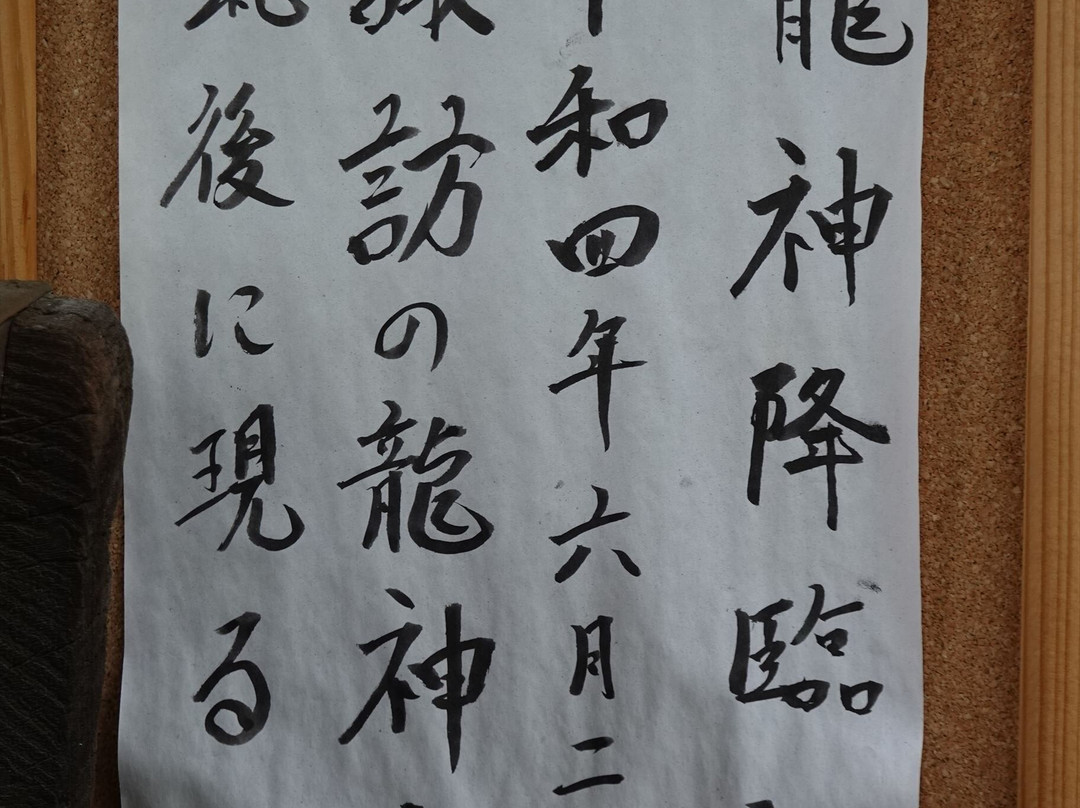 龍神降臨
和四年六月二
訪の龍神
後に現る